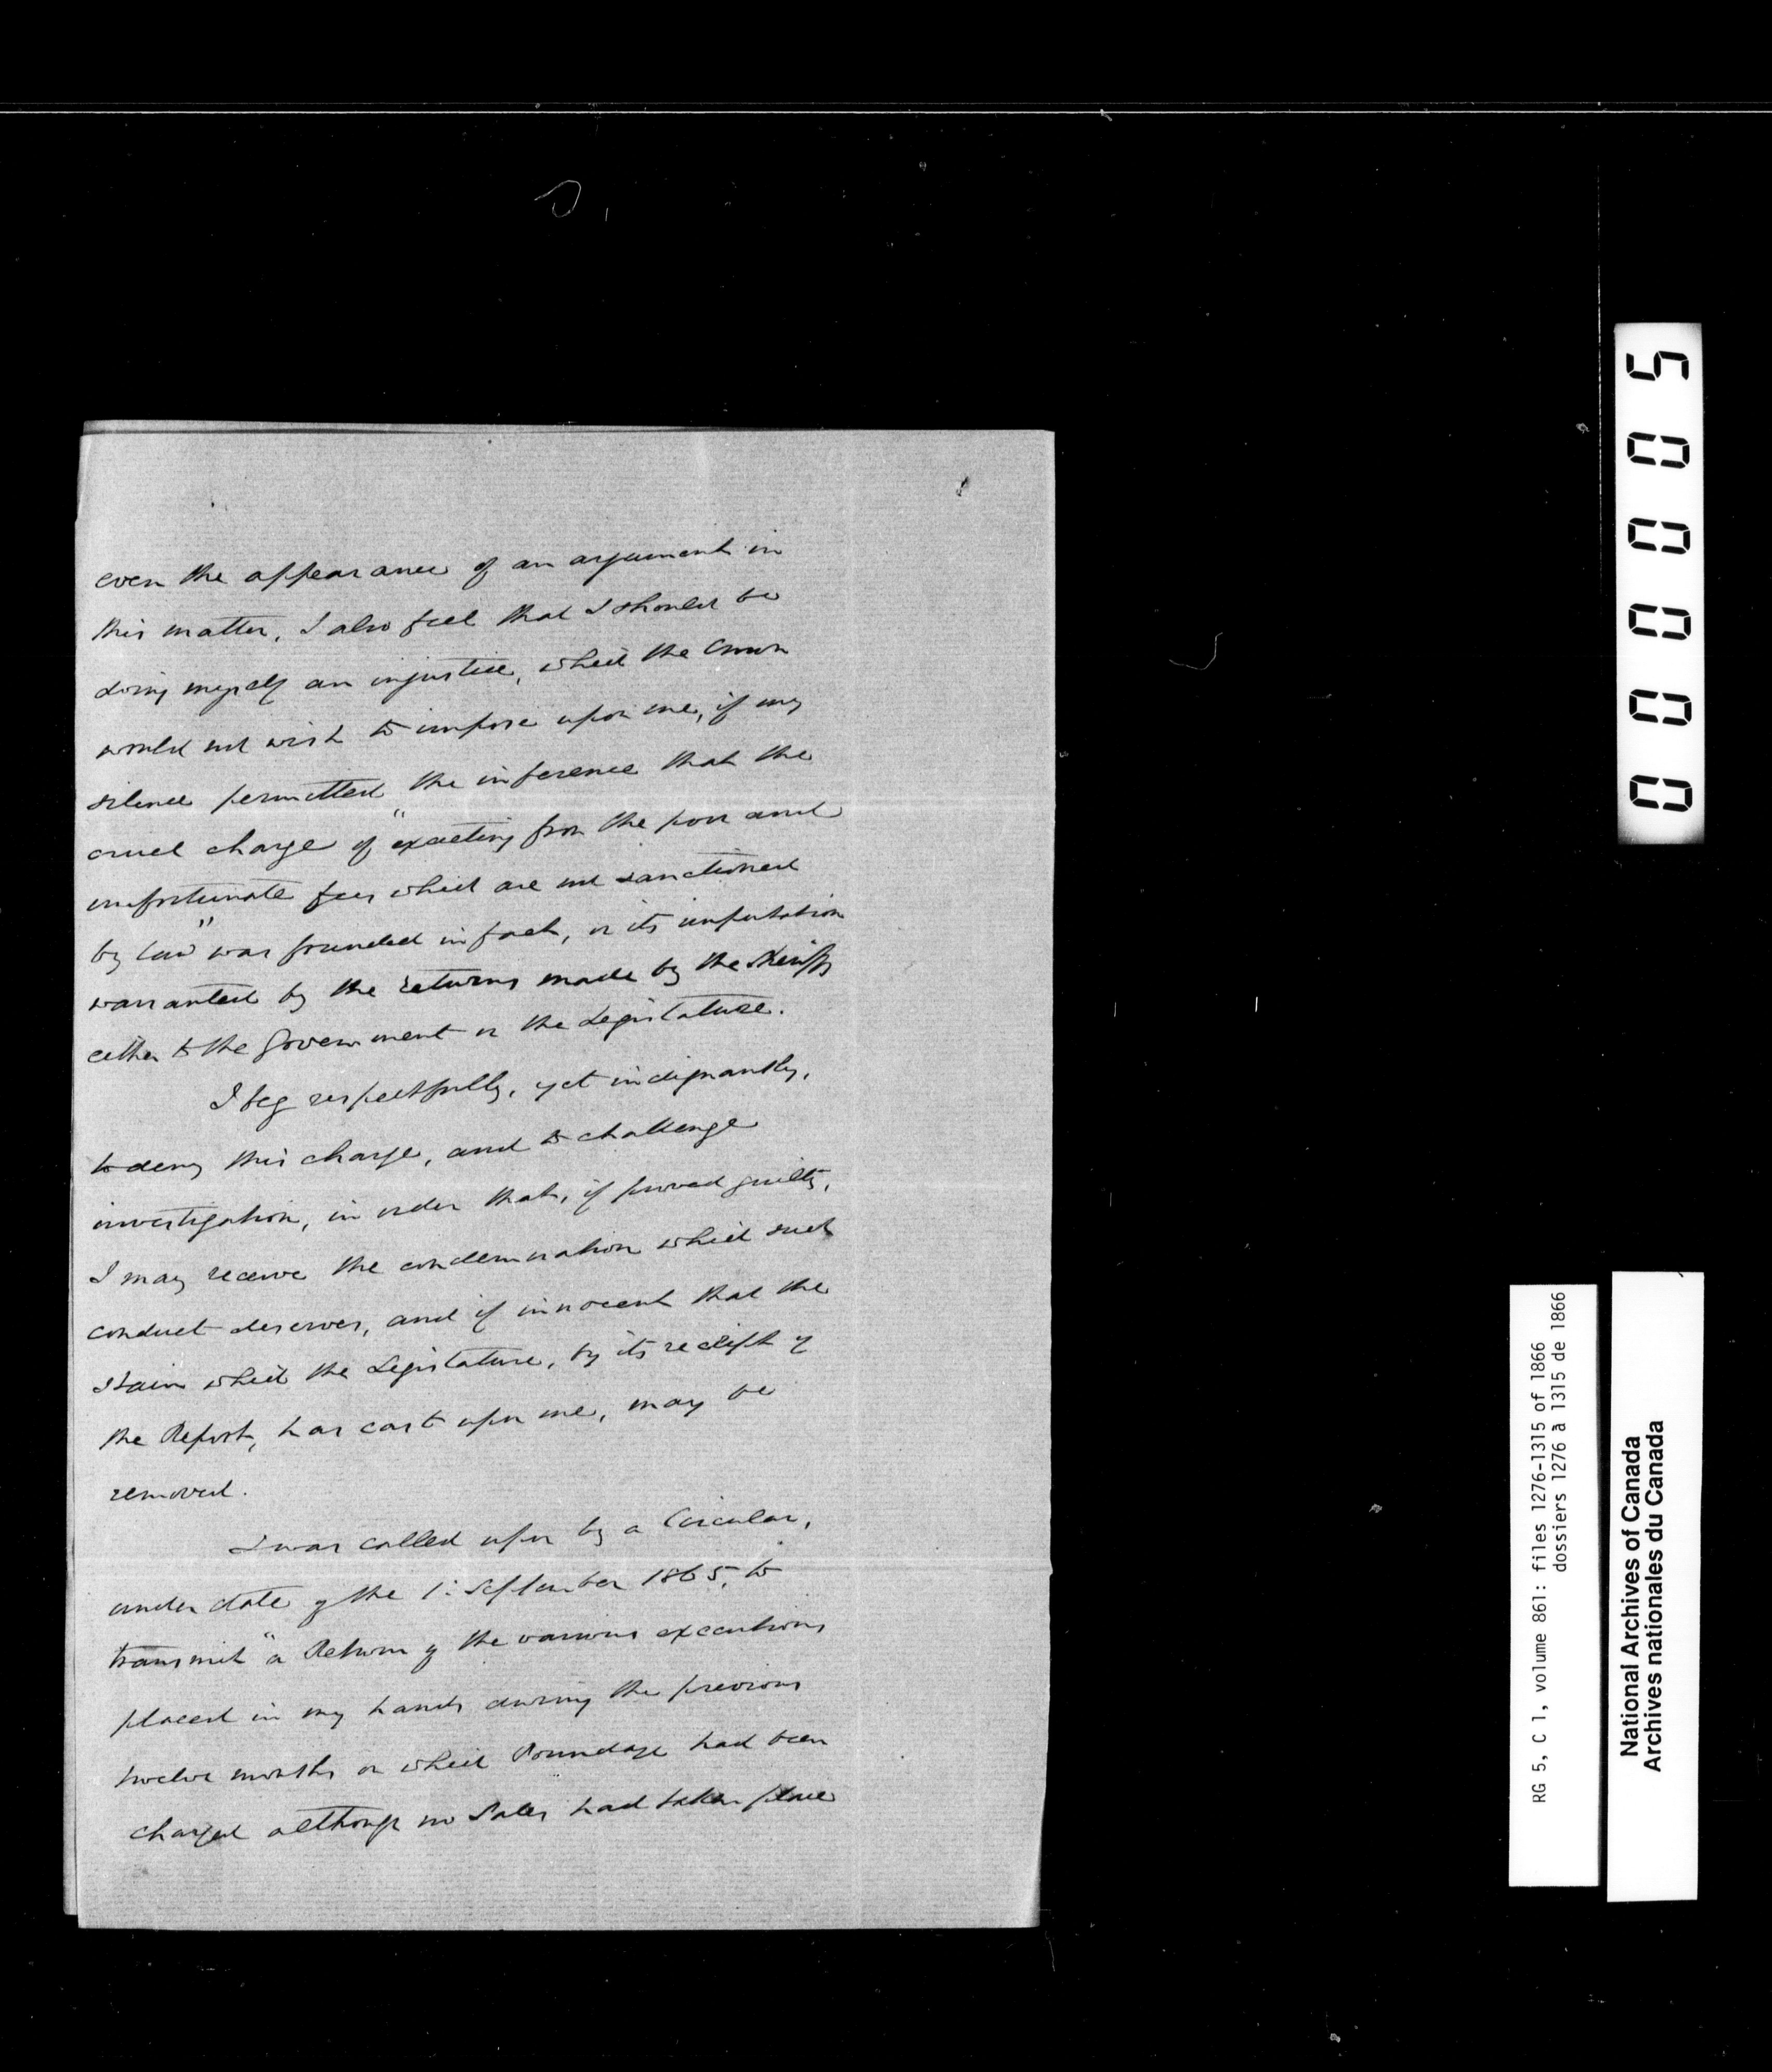 even the appearance of an argument in
this matter, I also feel that I should be
doing myself an injustice, which the Crown
would not wish to impose upon me, if my
silence permitted the inference that the
cruel charge of "exacting from the poor and
unfortunate fees which are not sanctioned
by law" was founded in fact, or its imputation
warranted by the returns made by the Sheriffs
either to the Government or the Legislature.
I beg respectfully, yet indignantly,
to deny this charge, and to challenge
investigation, in order that, if proved guilty,
I may receive the condemnation which such
conduct deserves, and if innocent that the
stain which the Legislature, by its receipt of
the Report, has cast upon me, may be
removed.
I was called upon by a Circular,
under date of the 1: September 1865, to
transmit "a Return of the various executions
placed in my hands during the previous
twelve months on which Poundage had been
charged although no Sales had taken place
000005
RG 5, C 1, volume 861: files 1276-1315 of 1866
dossiers 1276 à 1315 de 1866
National Archives of Canada
Archives nationales du Canada